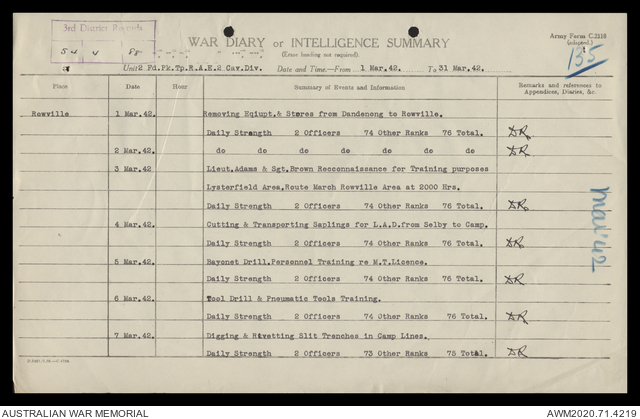 3rd District Records
54 V 88
WAR DIARY or INTELLIGENCE SUMMARY
(Erase heading not required).
Army Form C.2118
(adapted.)
1
135
Unit 2 Fd.Pk.Tp.R.A.E.2 Cav.Div. Date and Time.—From 1 Mar.42. To 31 Mar.42.
Place Date Hour Summary of Events and Information Remarks and references to Appendices, Diaries, &c.
Rowville 1 Mar.42. Removing Eqiupt.& Stores from Dandenong to Rowville.
Daily Strength 2 Officers 74 Other Ranks 76 Total. DR
2 Mar.42. do do do do do do DR
3 Mar.42 Lieut.Adams & Sgt.Brown Recconnaissance for Training purposes
Lysterfield Area,Route March Rowville Area at 2000 Hrs.
Daily Strength 2 Officers 74 Other Ranks 76 Total. DR
Mar '42
4 Mar.42. Cutting & Transporting Saplings for L.A.D.from Selby to Camp.
Daily Strength 2 Officers 74 Other Ranks 76 Total. DR
5 Mar.42. Bayonet Drill.Personnel Training re M.T.Licence.
Daily Strength 2 Officers 74 Other Ranks 76 Total. DR
6 Mar.42. Tool Drill & Pneumatic Tools Training.
Daily Strength 2 Officers 74 Other Ranks 76 Total. DR
7 Mar.42. Digging & Rivetting Slit Trenches in Camp Lines.
Daily Strength 2 Officers 73 Other Ranks 75 Total. DR
AUSTRALIAN WAR MEMORIAL AWM2020.71.4219